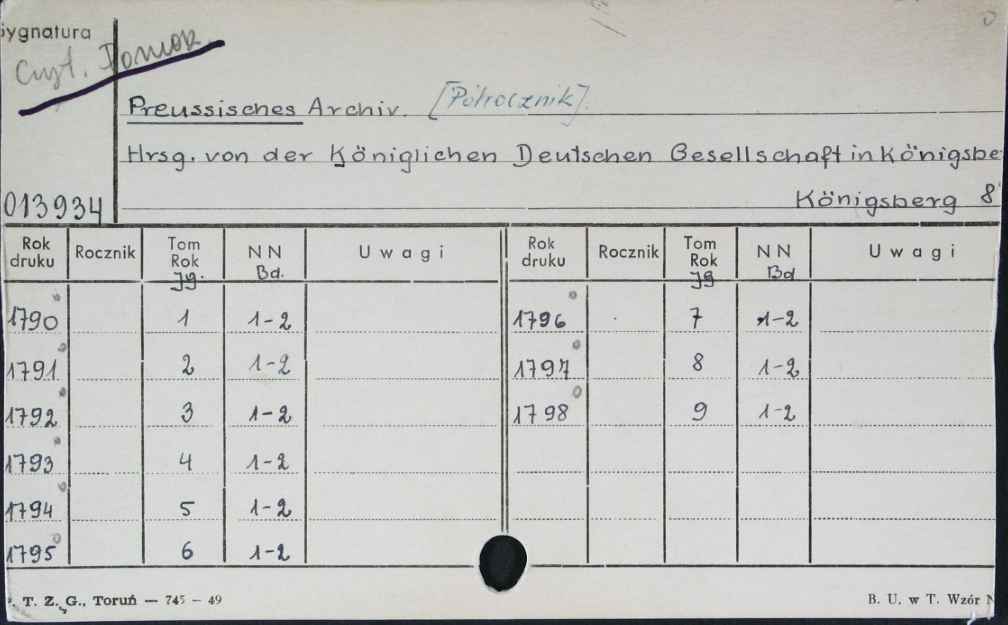 Sygnatura
Czyt. Pomor.
Preussisches Archiv. [Półrocznik].
Hrsg. von der Königlichen Deutschen Gesellschaft in Königsbe
013934 Königsberg 8
Rok druku Rocznik Tom Rok Jg. NN Bd. Uwagi Rok druku Rocznik Tom Rok Jg NN Bd Uwagi
1790 1 1-2 1796 7 1-2
1791 2 1-2 1797 8 1-2
1792 3 1-2 1798 9 1-2
1793 4 1-2
1794 5 1-2
1795 6 1-2
. T. Z. G., Toruń — 745 — 49 B. U. w T. Wzór N